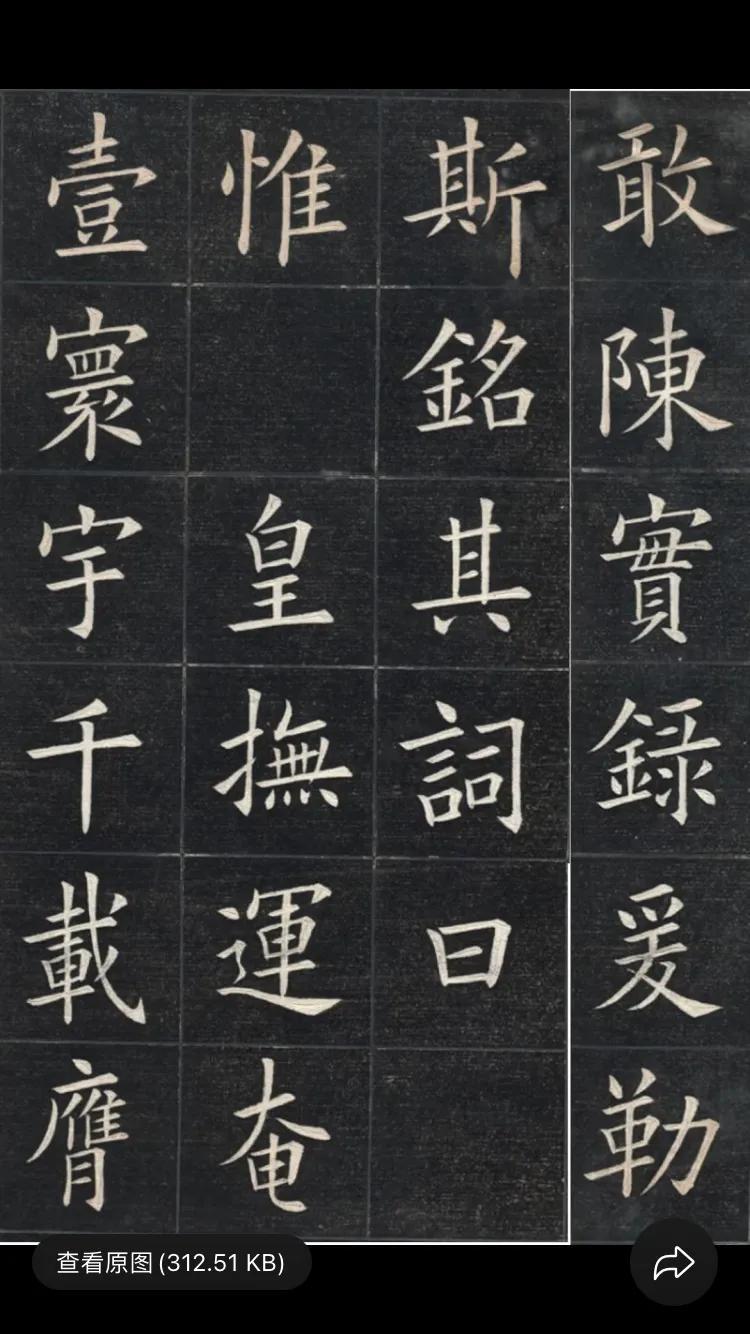 敢陳實錄爰勒
斯銘其詞曰
惟皇撫運奄
壹寰宇千載膺
查看原图(312.51 KB)